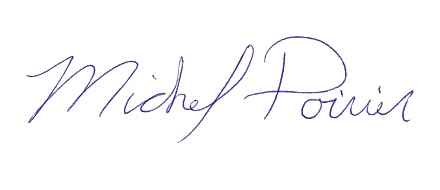 Michel Poirier